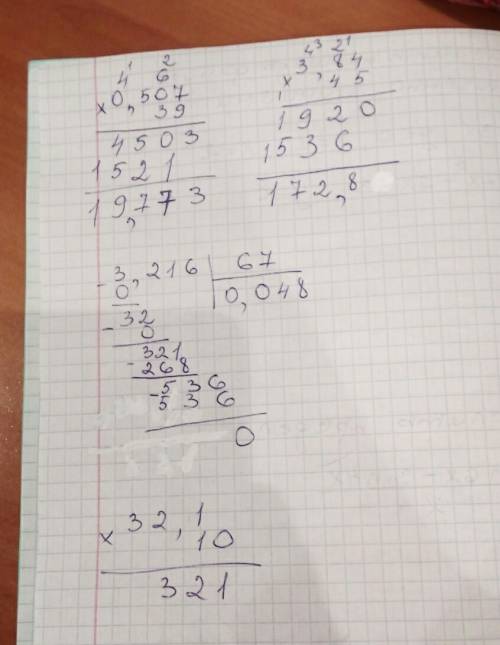 4 1 2
6
× 0,507
39
4503
1521
19,773
4 3 2 1
× 3,84
45
1920
1536
172,8
- 3,216 | 67
0 | 0,048
- 32
0
- 321
268
- 536
536
0
× 32,1
10
321